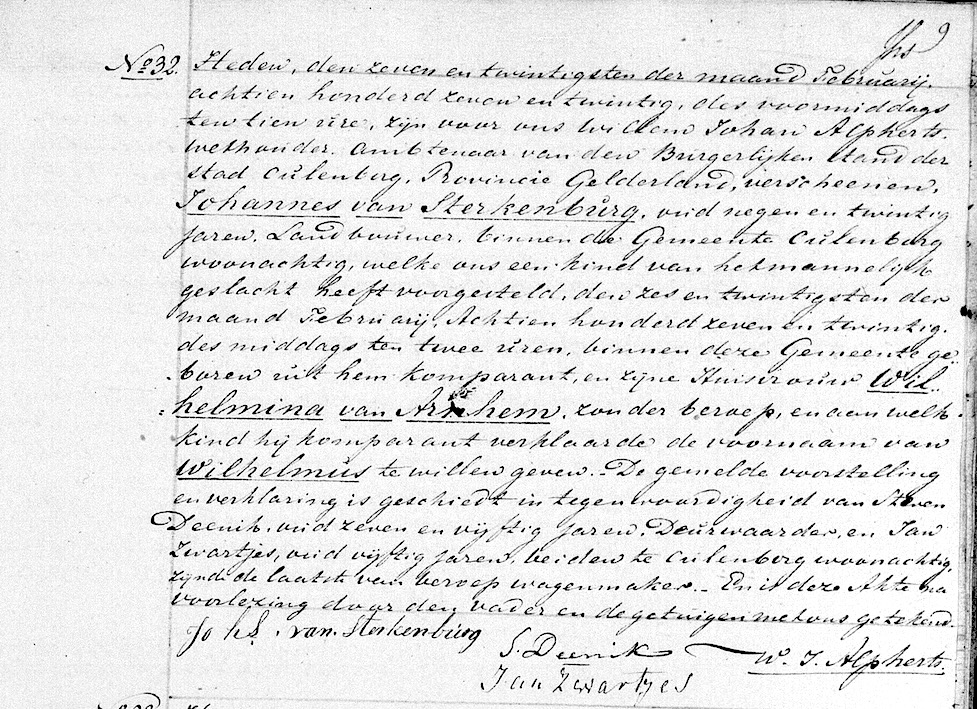 9
No 32. Heden, den zeven en twintigsten der maand Februarij,
achtien honderd zeven en twintig, des voormiddags
ten tien ure, zijn voor ons Willem Johan Alpherts.
wethouder. ambtenaar van den Burgerlijken stand der
stad Culenborg, Provincie Gelderland, verscheenen,
Johannes van Sterkenburg, oud negen en twintig
jaren, Landbouwer, binnen die Gemeente Culenborg
woonachtig, welke ons een kind van het mannelijk
geslacht heeft voorgesteld, den zes en twintigsten der
maand Februarij, Achtien honderd zeven en twintig.
des middags ten twee uren, binnen deze Gemeente ge-
boren uit hem komparant, en zijne Huisvrouw Wil-
helmina van Arnhem, zonder beroep, en aan welk
kind hij komparant verklaarde de voornaam van
Wilhelmus te willen geven. De gemelde voorstelling
en verklaring is geschiedt in tegenwoordigheid van Steven
Deenik, oud zeven en vijftig jaren, Deurwaarder, en Jan
Zwartjes, oud vijftig jaren, beiden te Culenborg woonachtig,
zijnde de laatste van beroep wagenmaker. - En is deze Akte na
voorlezing door den vader en de getuigen met ons getekend.
Johs. van Sterkenburg
S. Deenik W. J. Alpherts.
Jan Zwartjes